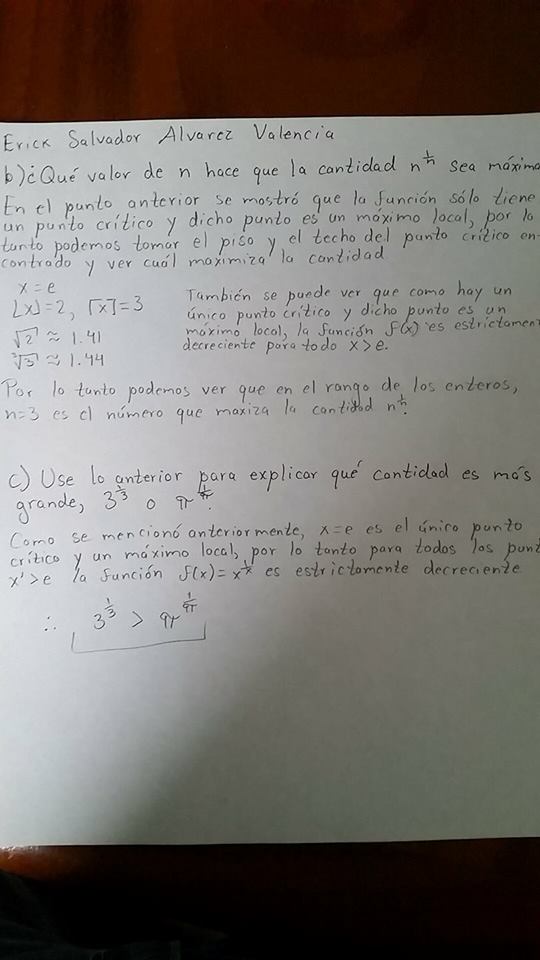 Erick Salvador Alvarez Valencia
b)¿Qué valor de n hace que la cantidad n^{1/n} sea máxima
En el punto anterior se mostró que la función sólo tiene
un punto crítico y dicho punto es un máximo local, por lo
tanto podemos tomar el piso y el techo del punto crítico en-
contrado y ver cuál maximiza la cantidad.
x = e
⌊x⌋=2, ⌈x⌉=3
√2 ≈ 1.41
∛3 ≈ 1.44
También se puede ver que como hay un
único punto crítico y dicho punto es un
máximo local, la función f(x) es estrictamen
decreciente para todo x>e.
Por lo tanto podemos ver que en el rango de los enteros,
n=3 es el número que maxiza la cantidad n^{1/n}.
c) Use lo anterior para explicar qué cantidad es más
grande, 3^{1/3} o π^{1/π}.
Como se mencionó anteriormente, x=e es el único punto
crítico y un máximo local, por lo tanto para todos los punt
x'>e la función f(x)=x^{1/x} es estrictamente decreciente
∴ 3^{1/3} > π^{1/π}